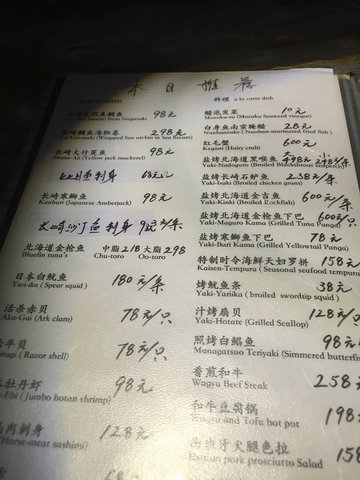 本日推荐
SASHIMI
98元
from Nagasaki
长崎鲷鱼海胆卷 298元
(Wrapped Sea urchin in Sea bream)
长崎大竹荚鱼 98元
Shima-Aji (Yellow jack mackerel)
刺身 68元
长崎寒鰤鱼 98元
Kanburi (Japanese Amberjack)
长崎沙丁鱼刺身
北海道金枪鱼 中脂218 大脂298
Bluefin tuna's Chu-toro Oo-toro
日本白鱿鱼 180元/条
Yari-ika (Spear squid)
活杀赤贝 78元/只
Aka-Gai (Ark clam)
活平贝 78元/只
(Razor shell)
牡丹虾 98元
-Ebi (Jumbo botan shrimp)
肉刺身 128元
(Horse-meat sashimi)
料理 a la carte dish
醋泡发菜 10元
Mozuku-su (Mozuku Seaweed vinegar)
白身鱼南蛮腌醋 28元
Nanbanzuke (Nagoham-marinated fried fish)
红毛蟹 600元
Kegani (Hairy crab)
盐烤北海道黑喉鱼 大498元 小248元/条
Yaki-Nodoguro (Broiled Blackthroat seaperch)
盐烤长崎石鲈鱼 238元/条
Yaki-Isaki (Broiled chicken grunt)
盐烤北海道金吉鱼 600元/条
Yaki-Kinki (Broiled Rockfish)
盐烤北海道金枪鱼下巴 600元/只
Yaki-Maguro Kama (Grilled Tuna Panga)
盐烤寒鰤鱼下巴 78元
Yaki-Buri Kama (Grilled Yellowtail Panga)
特制时令海鲜天妇罗拼 158元
Kaisen-Tempura (Seasonal seafood tempura
烤鱿鱼条 38元
Yaki-Yariika (broiled swordtip squid)
汁烤扇贝 128元/只
Yaki-Hotate (Grilled Scallop)
照烤白鲳鱼 98元
Managatsuo Teriyaki (Simmered butterfi
香煎和牛 258
Wagyu Beef Steak
和牛豆腐锅 198
Wagyu and Tofu hot pot
西班牙火腿色拉 158
Iberian pork prosciutto Salad